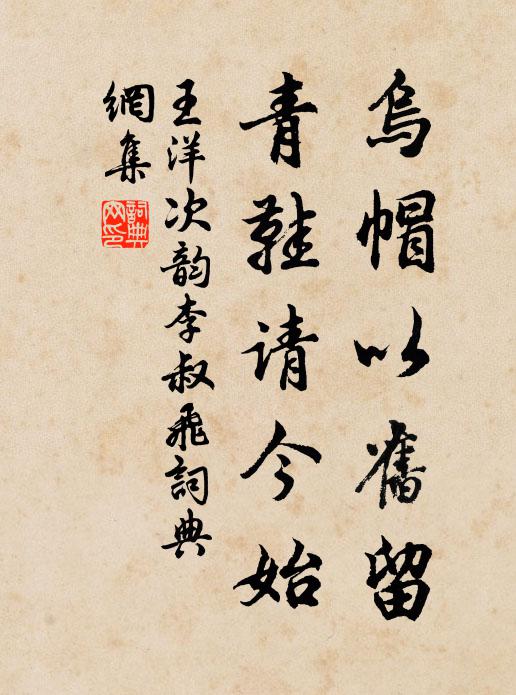 烏帽以舊留
青鞋请今始
王洋次韵李叔飛詞典
網集
詞典
网印